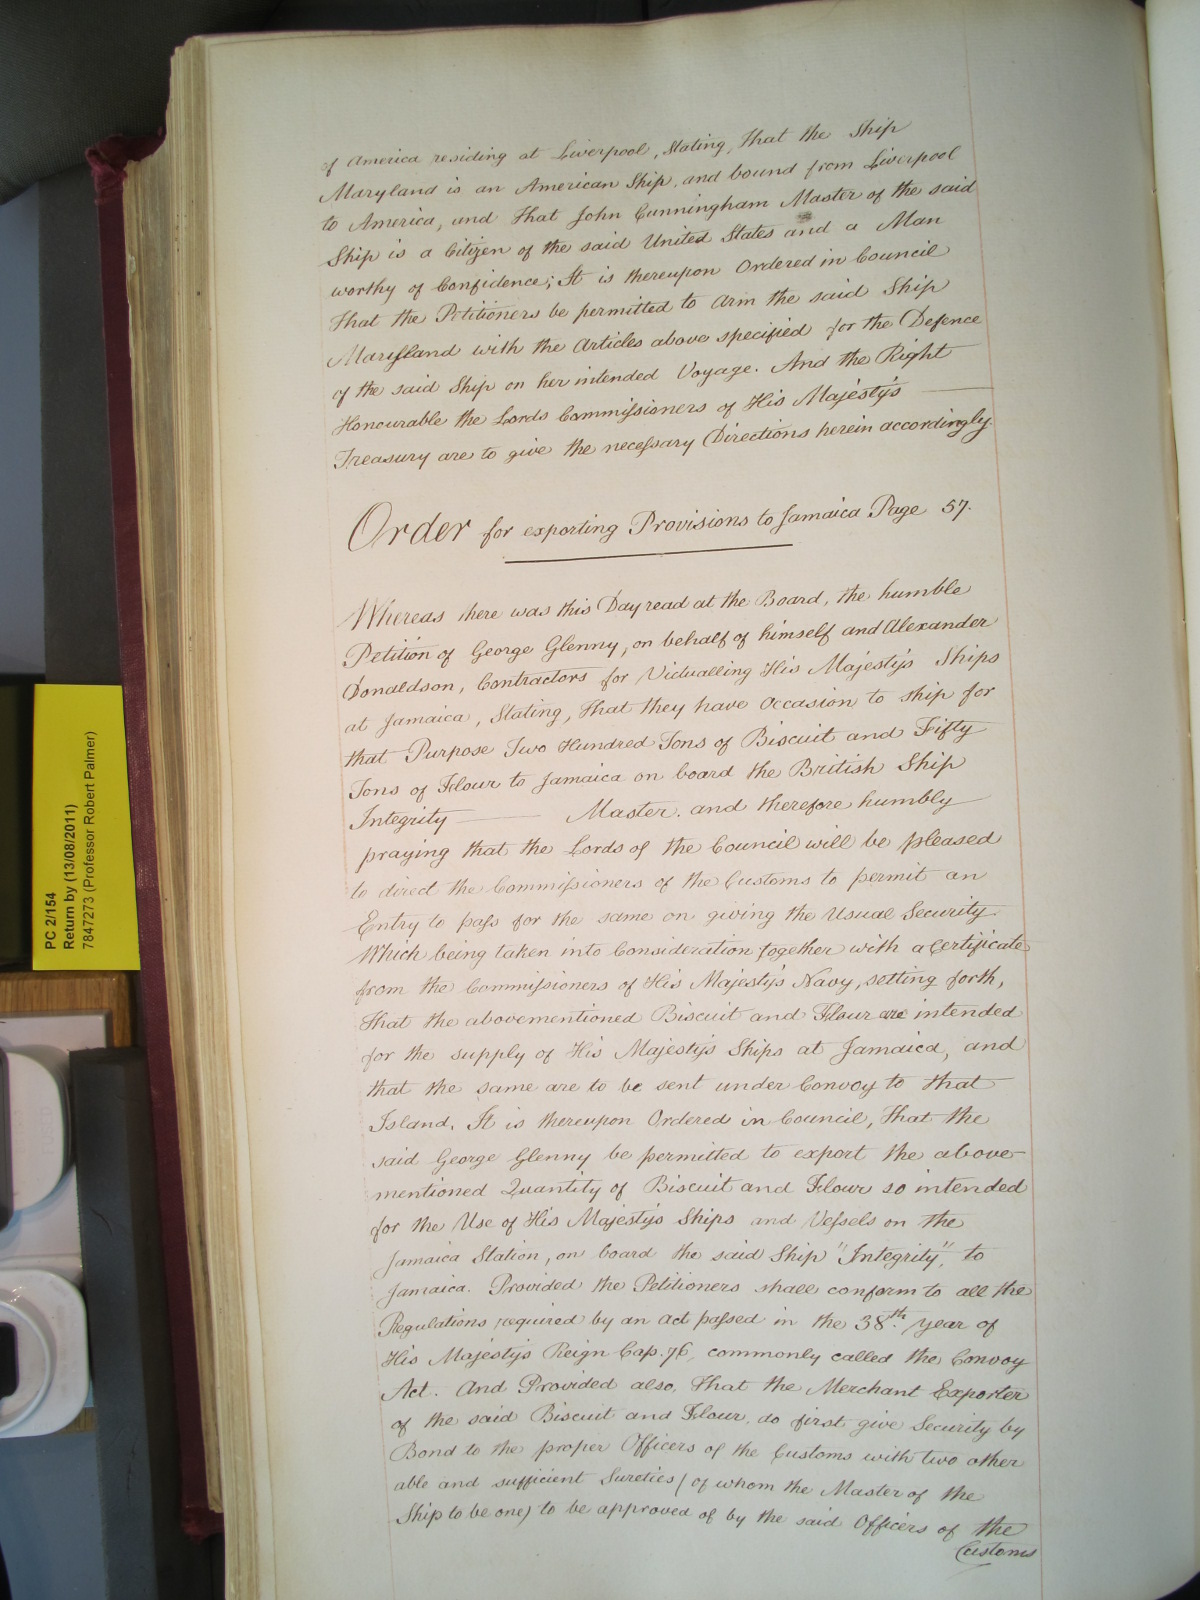 of America residing at Liverpool, Stating, That the Ship
Maryland is an American Ship, and bound from Liverpool
to America, and that John Cunningham Master of the said
Ship is a Citizen of the said United States and a Man
worthy of Confidence; It is thereupon Ordered in Council
that the Petitioners be permitted to arm the said Ship
Maryland with the Articles above specified for the Defence
of the said Ship on her intended Voyage. And the Right
Honourable the Lords Commissioners of His Majesty's
Treasury are to give the necessary Directions herein accordingly.
Order for exporting Provisions to Jamaica Page 57.
Whereas there was this Day read at the Board, the humble
Petition of George Glenny, on behalf of himself and Alexander
Donaldson, Contractors for Victualling His Majesty's Ships
at Jamaica, Stating, That they have Occasion to ship for
that Purpose Two Hundred Tons of Biscuit and Fifty
Tons of Flour to Jamaica on board the British Ship
Integrity — Master, and therefore humbly
praying that the Lords of the Council will be pleased
to direct the Commissioners of the Customs to permit an
Entry to pass for the same on giving the Usual Security.
Which being taken into Consideration together with a Certificate
from the Commissioners of His Majesty's Navy, setting forth,
that the abovementioned Biscuit and Flour are intended
for the supply of His Majesty's Ships at Jamaica, and
that the same are to be sent under Convoy to that
Island. It is thereupon Ordered in Council, that the
said George Glenny be permitted to export the above-
mentioned Quantity of Biscuit and Flour so intended
for the Use of His Majesty's Ships and Vessels on the
Jamaica Station, on board the said Ship "Integrity", to
Jamaica. Provided the Petitioners shall conform to all the
Regulations required by an Act passed in the 38th. Year of
His Majesty's Reign Cap. 76, commonly called the Convoy
Act. And Provided also, that the Merchant Exporter
of the said Biscuit and Flour, do first give Security by
Bond to the proper Officers of the Customs with two other
able and sufficient Sureties (of whom the Master of the
Ship to be one) to be approved of by the said Officers of the
Customs
PC 2/154
Return by (13/08/2011)
7847273 (Professor Robert Palmer)